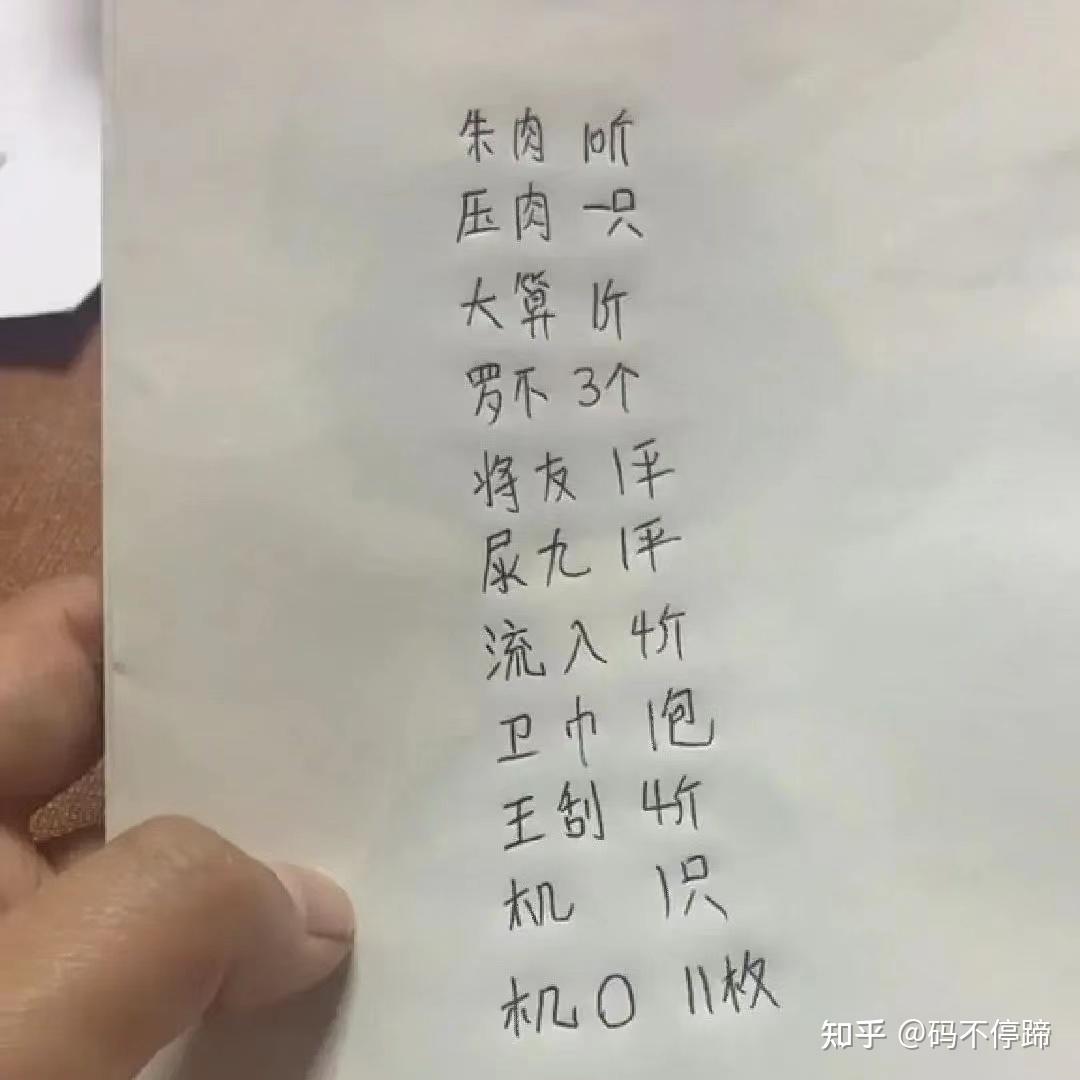 朱肉 10斤
压肉 一只
大算 1斤
罗不 3个
将友 1平
尿九 1平
流入 4斤
卫巾 1包
王刮 4斤
机 1只
机0 11枚
知乎 @码不停蹄